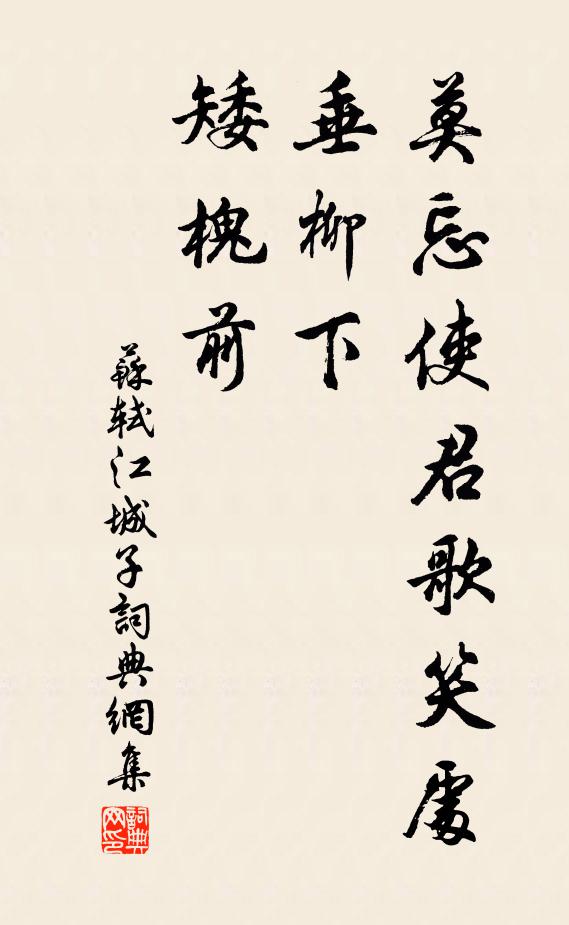 莫忘使君歌笑處
垂柳下
矮槐前
蘇軾江城子詞典網集
詞典网印